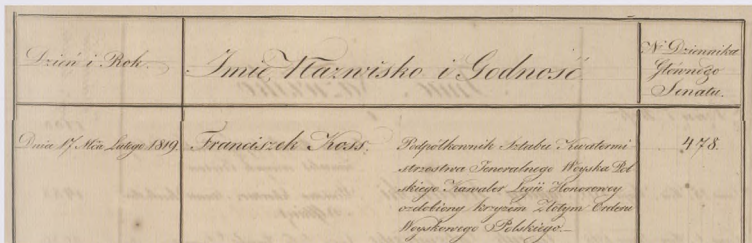 Dzień i Rok.
Imię, Nazwisko i Godność.
N. Dziennika
Głównego
Senatu.
Dnia 17. Mca Lutego 1819.
Franciszek Koss.
Podpółkownik Sztabu Kwatermi
strzostwa Jeneralnego Woyska Pol
skiego Kawaler Legii Honorowey
ozdobiony krzyżem Złotym Orderu
Woyskowego Polskiego.—
478.